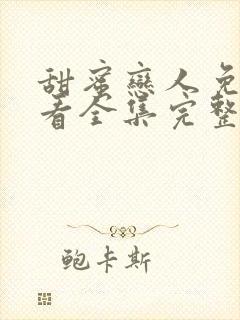 甜蜜戀人免
看全集完整
鲍卡斯